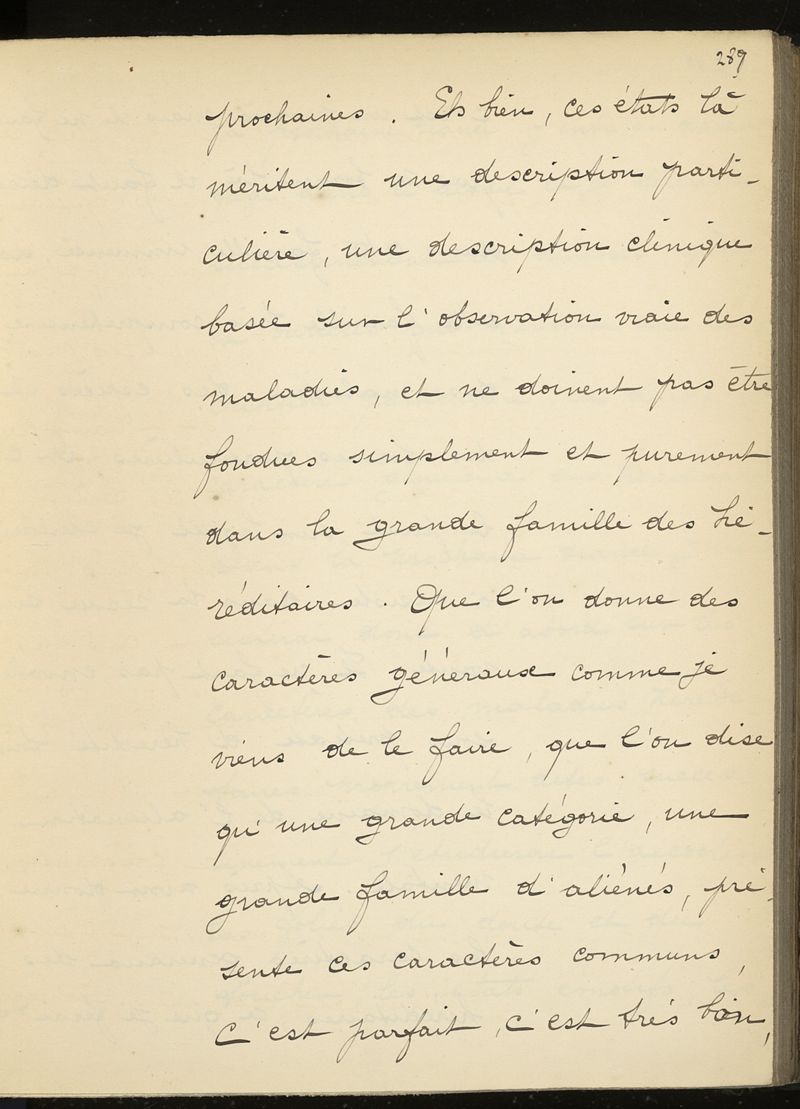 289
prochaines. Eh bien, ces états là
méritent une description parti-
culière, une description clinique
basée sur l'observation vraie des
maladies, et ne doivent pas être
fondues simplement et purement
dans la grande famille des hé-
réditaires. Que l'on donne des
caractères généraux comme je
viens de le faire, que l'on dise
qu'une grande catégorie, une
grande famille d'aliénés, pré-
sente ces caractères communs,
C'est parfait, c'est très bien,